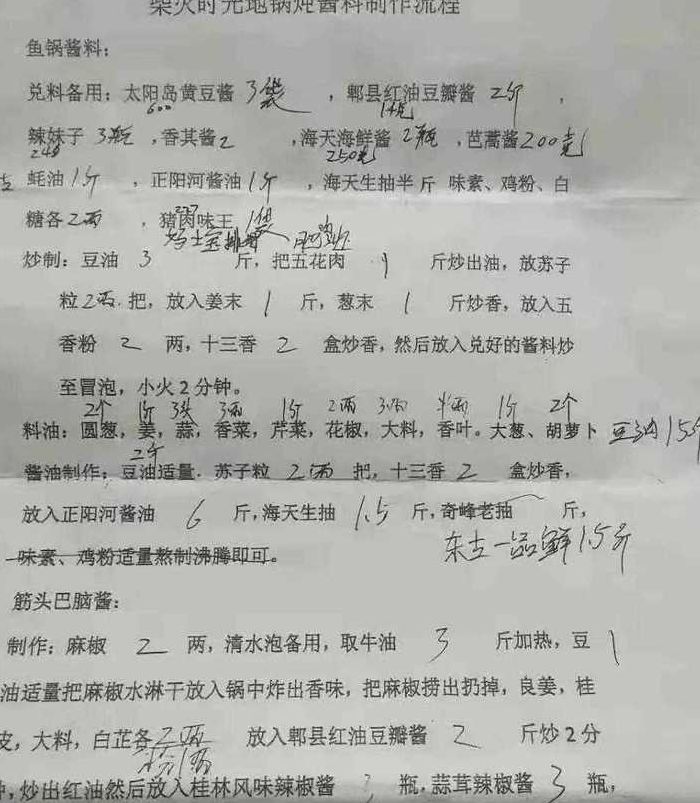 柴火时光地锅炖酱料制作流程
鱼锅酱料：
兑料备用：太阳岛黄豆酱 3袋 ，郫县红油豆瓣酱 2斤 ，
600
辣妹子 3瓶 ，香其酱2 ，海天海鲜酱 2瓶 ，芭蒿酱200克
248 250克
蚝油 1斤 ，正阳河酱油 1斤 ，海天生抽半 斤 味素、鸡粉、白
糖各2两 ，猪肉味王 1袋
227
炒制：豆油 3 斤，把五花肉 1 斤炒出油，放苏子
粒2两. 把，放入姜末 1 斤，葱末 1 斤炒香，放入五
香粉 2 两，十三香 2 盒炒香，然后放入兑好的酱料炒
至冒泡，小火2分钟。
2个 1斤 3头 3两 1斤 2两 3两 半两 1斤 2个
料油：圆葱，姜，蒜，香菜，芹菜，花椒，大料，香叶。大葱、胡萝卜 豆油15斤
酱油制作：豆油适量. 苏子粒 2两 把，十三香 2 盒炒香，
2斤
放入正阳河酱油 6 斤，海天生抽 1.5 斤，奇峰老抽 斤，
味素、鸡粉适量熬制沸腾即可。 东古一品鲜1.5斤
筋头巴脑酱：
制作：麻椒 2 两，清水泡备用，取牛油 3 斤加热，豆 1
油适量把麻椒水淋干放入锅中炸出香味，把麻椒捞出扔掉，良姜，桂
皮，大料，白芷各2两 放入郫县红油豆瓣酱 2 斤炒2分
钟，炒出红油然后放入桂林风味辣椒酱 瓶，蒜茸辣椒酱 3 瓶，